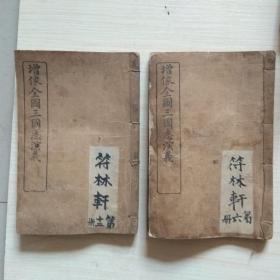 增像全圖三國志演義
符林軒
第十二册
增像全圖三國志演義
符林軒
第六册